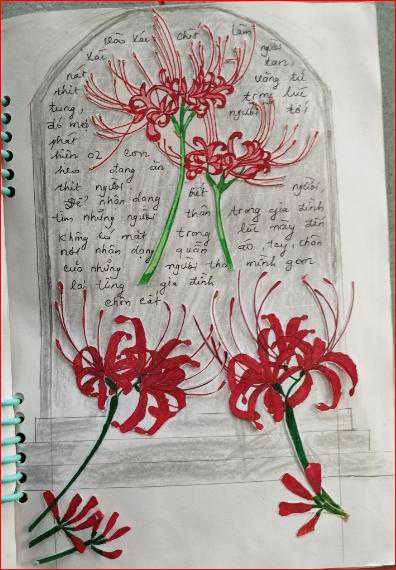 Đào xác chết lên
xác người
nát tan,
thịt văng tứ
tung, trong lúc
đó một người tới
phát
hiện 02 con
heo đang ăn
thịt người.
Để nhận dạng biết người,
tìm những người thân trong gia đình
không có mặt trong lúc này đến
nơi nhận dạng quần áo, tay, chân
của những người thân mình gom
lại từng gia đình
chôn cất